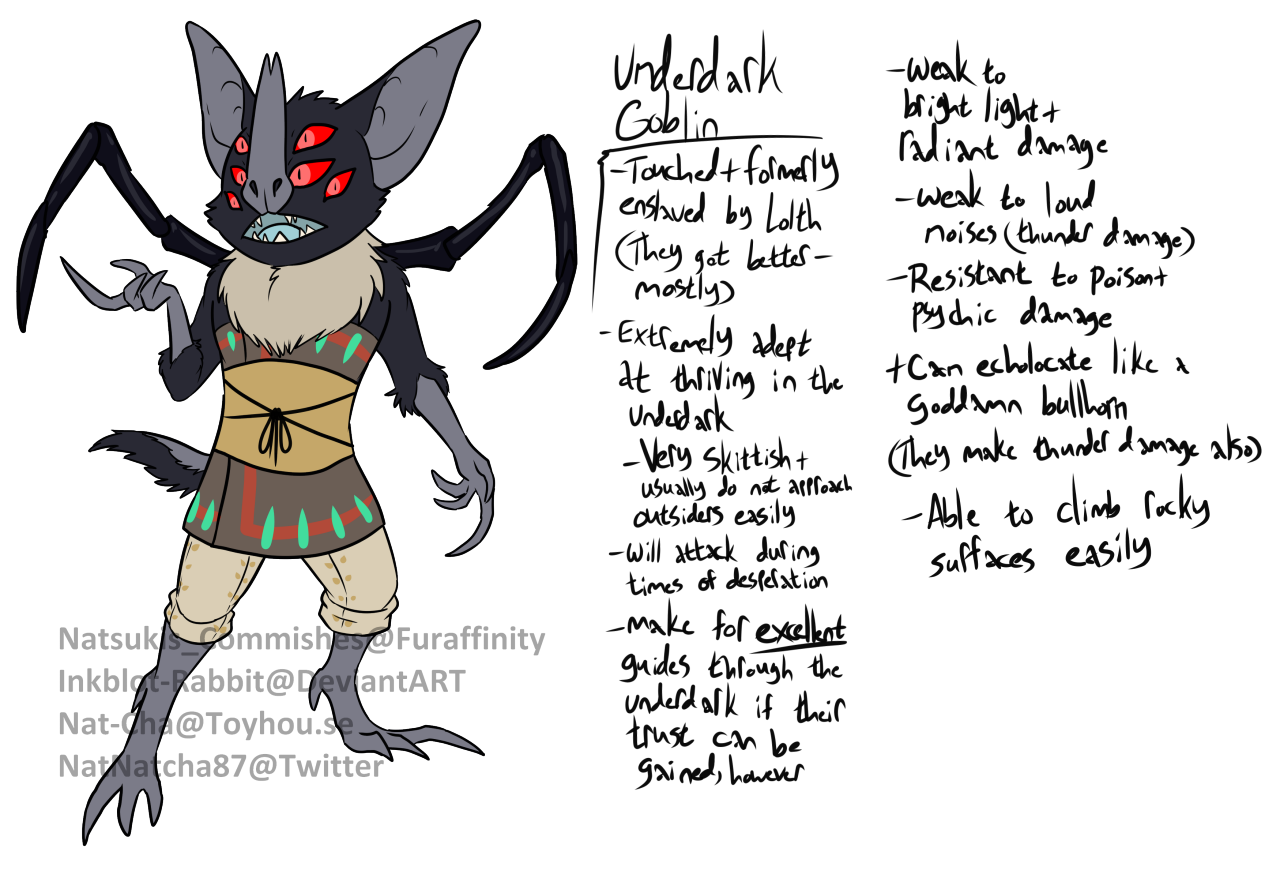 Underdark
Goblin
-Touched + formerly
enslaved by Lolth
(They got better-
mostly)
-Extremely adept
at thriving in the
underdark
-Very skittish +
usually do not approach
outsiders easily
-Will attack during
times of desperation
-make for excellent
guides through the
underdark if their
trust can be
gained, however
-weak to
bright light +
radiant damage
-weak to loud
noises (thunder damage)
-Resistant to poison +
psychic damage
+Can echolocate like a
goddamn bullhorn
(They make thunder damage also)
-Able to climb rocky
surfaces easily
Natsukis_Commishes@Furaffinity
Inkblot-Rabbit@DeviantART
Nat-Cha@Toyhou.se
NatNatcha87@Twitter